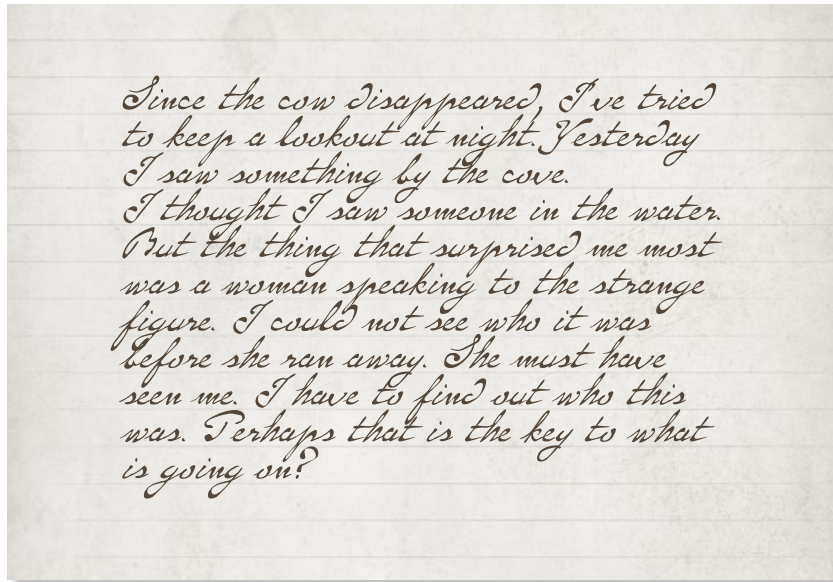 Since the cow disappeared, I've tried
to keep a lookout at night. Yesterday
I saw something by the cove.
I thought I saw someone in the water.
But the thing that surprised me most
was a woman speaking to the strange
figure. I could not see who it was
before she ran away. She must have
seen me. I have to find out who this
was. Perhaps that is the key to what
is going on?